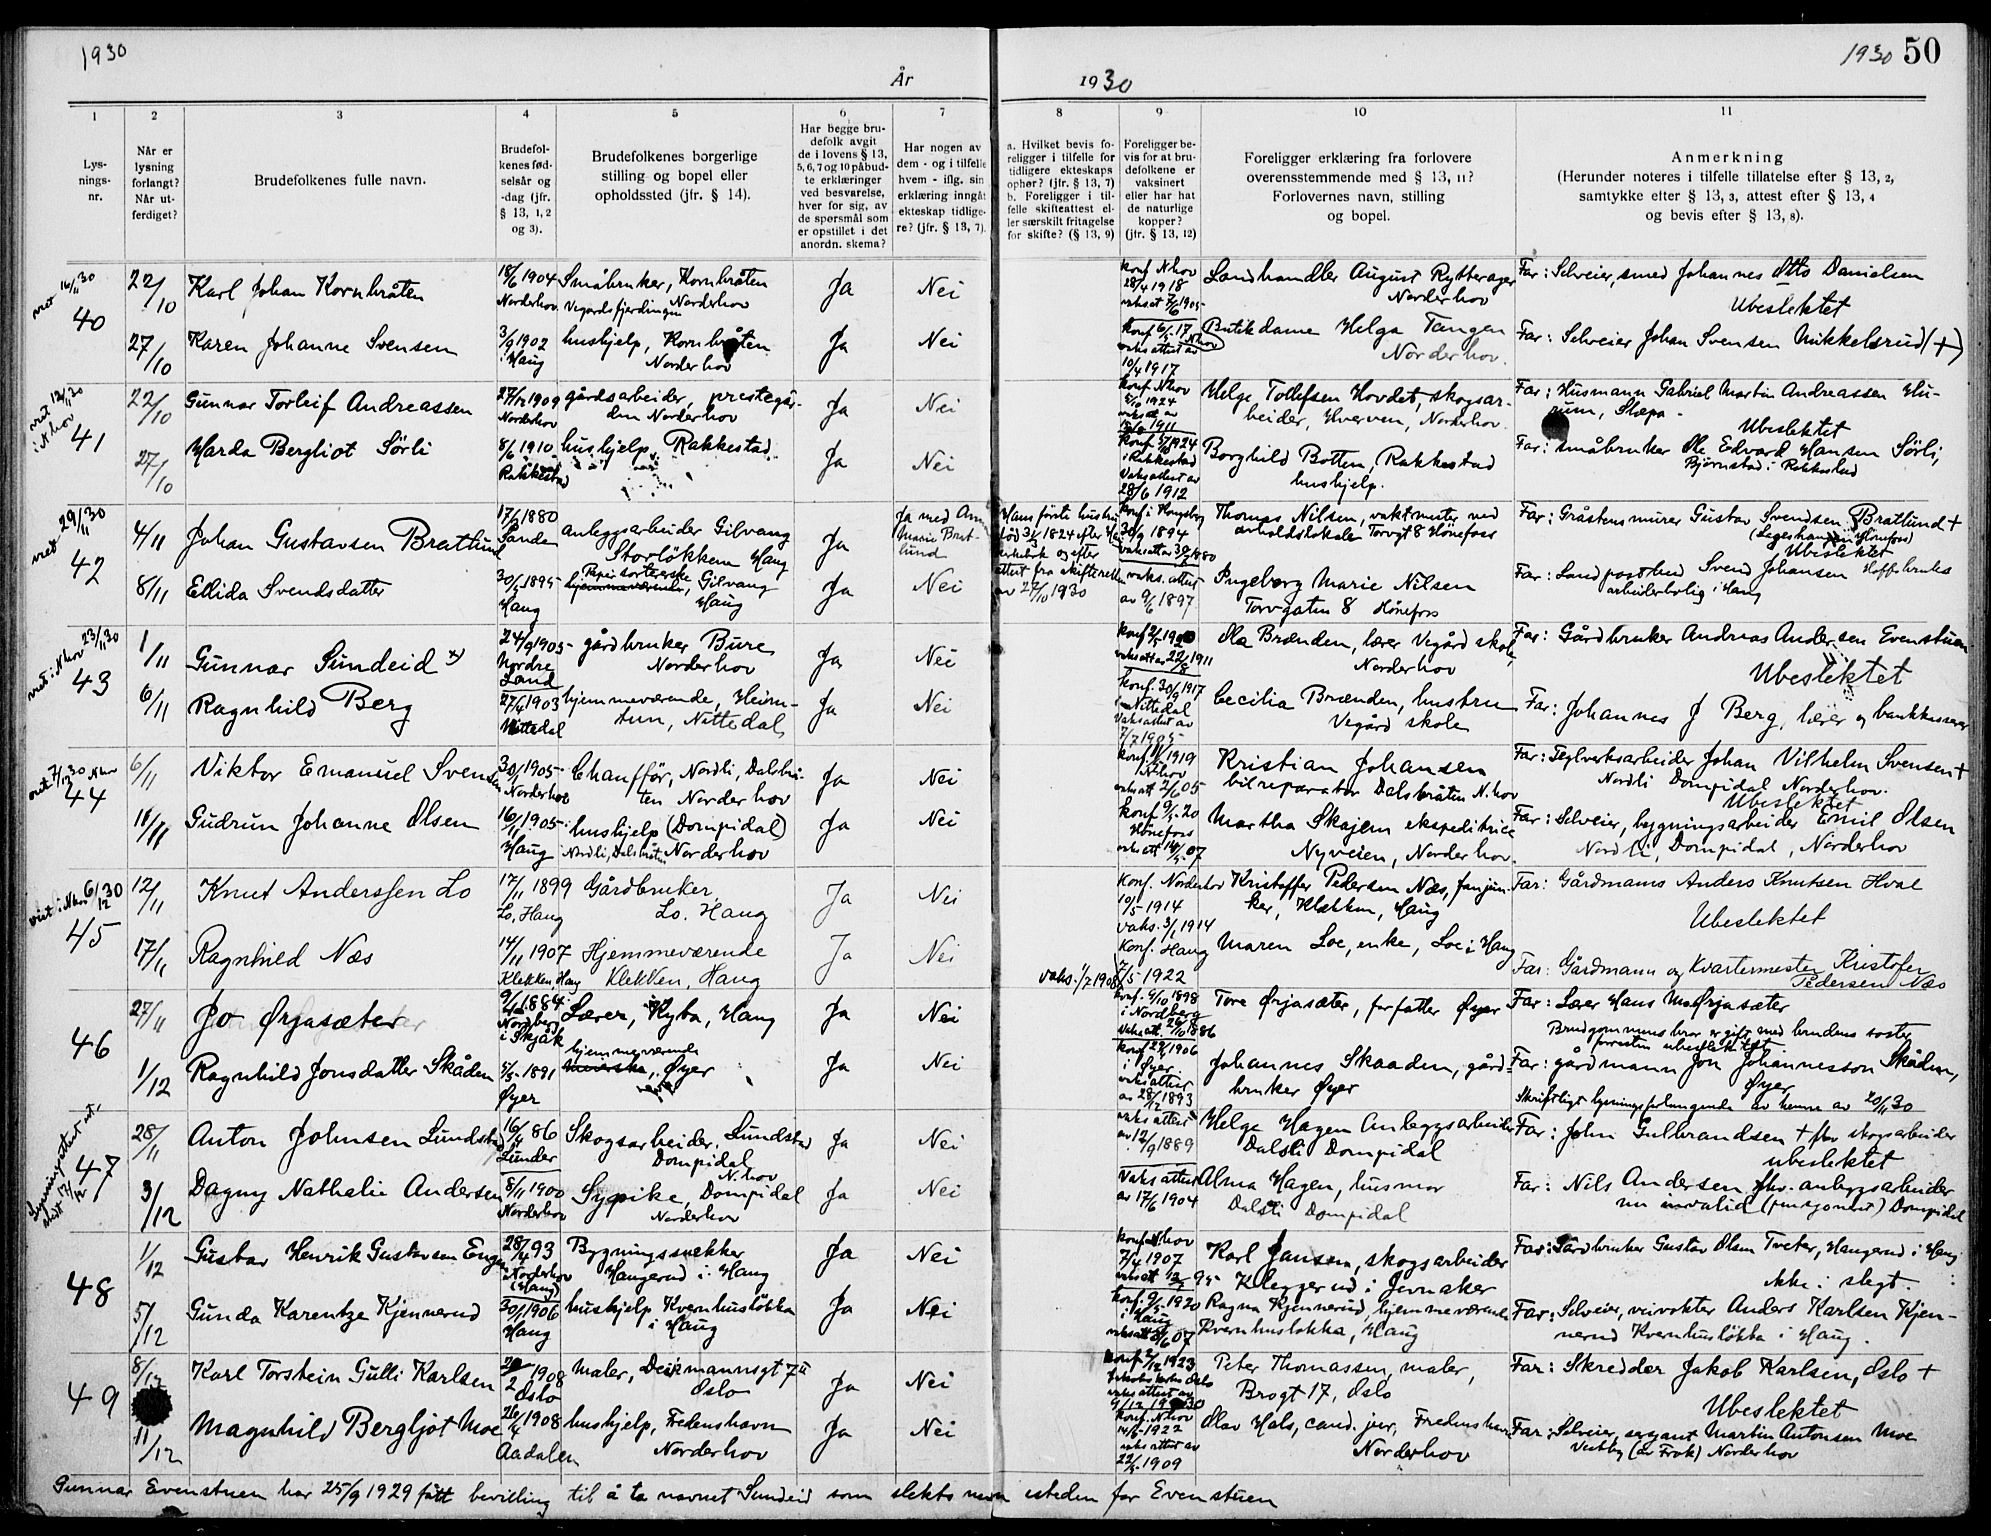 1930
År
1930
1930 50
1
2
3
4
5
6
7
8
9
10
11
Lys-
nings-
nr.
Når er
lysning
forlangt?
Når ut-
ferdiget?
Brudefolkenes fulle navn.
Brudefol-
kenes fød-
selsår og
-dag (jfr.
§ 13, 1, 2
og 3).
Brudefolkenes borgerlige
stilling og bopel eller
opholdssted (jfr. § 14).
Har begge bru-
defolk avgit
de i lovens § 13,
5, 6, 7 og 10 påbud-
te erklæringer
ved besvarelse,
hver for sig, av
de spørsmål som
er opstillet i det
anordn. skema?
Har nogen av
dem - og i tilfelle
hvem - iflg. sin
erklæring inngått
ekteskap tidlige-
re? (jfr. § 13, 7).
a. Hvilket bevis fo-
religger i tilfelle for
tidligere ekteskaps
ophør? (jfr. § 13, 7)
b. Foreligger i til-
felle skifteattest el-
ler særskilt fritagelse
for skifte? (§ 13, 9)
Foreligger be-
vis for at bru-
defolkene er
vaksinert
eller har hat
de naturlige
kopper?
(jfr. § 13, 12)
Foreligger erklæring fra forlovere
overensstemmende med § 13, 11?
Forlovernes navn, stilling
og bopel.
Anmerkning
(Herunder noteres i tilfelle tillatelse efter § 13, 2,
samtykke efter § 13, 3, attest efter § 13, 4
og bevis efter § 13, 8).
viet 16/11 30
40
22/10
Karl Johan Kornbråten
18/6 1904
Norderhov
Småbruker, Kornbråten
Vegårdsfjerdingen Norderhov
Ja
Nei
konf N.hov
28/4 1918
vaksat 7/6 1905
Landhandler August Rytterager
Norderhov
Far: Selveier, smed Johannes Otto Danielsen
Ubeslektet
27/10
Karen Johanne Svensen
3/9 1902
Haug
hushjelp, Kornbråten
Norderhov
Ja
Nei
N.hov
vaksattest av
10/4 1917
Butikdame Helga Tangen
Norderhov.
Far: Selveier Johan Svensen Mikkelsrud (+)
i N.hov
41
22/10
Gunnar Torleif Andreassen
27/12 1909
Norderhov
gårdsarbeider, prestegår-
den Norderhov
Ja
Nei
konf. N.hov
1924
1911
Helge Tollefsen Hovdet, skogsar-
beider, Hverven, Norderhov.
Far: Husmann Gabriel Martin Andreassen Hu-
rum, Støpa -
Ubeslektet
27/10
Marda Bergliot Sörli
8/6 1910
Rakkestad
hushjelp, Rakkestad
Ja
Nei
i Rakkestad
Vaksattest av
28/6 1912
Borghild Botten, Rakkestad
hushjelp.
Far: småbruker Ole Edvard Hansen Sörli,
Bjørnstad i Rakkestad
viet 29/11 30
42
4/11
Johan Gustavsen Bratlund
17/1 1880
Sande
anleggsarbeider Gilvang
Storlökken Haug
Ja
Ja med Anna
Marie Brat-
lund
Hans første hustru
død 3/3 1824 efter
kirkebok og efter
attest fra skifteretten
av 27/10 1930
konf i Hougsby
30/9 1894
Thomas Nilsen, vaktmester ved
avholdslokale Torvgt 8 Hönefoss
Far: Gråstensmurer Gustav Svendsen Bratlund +
Ubeslektet
8/11
Ellida Svendsdatter
30/5 1895
Haug
Papirsorterske
hjemmeværende, Gilvang
Haug
Ja
Nei
vaks. attest
av 9/6 1897
Ingeborg Marie Nilsen
Torvgaten 8 Hønefoss
Far: Landpostbud Svend Johansen Hoffsbruks
arbeiderbolig i Haug
viet i N.hov 23/11 30
43
1/11
Gunnar Sundeid x)
24/9 1905
Nordre
Land
gårdbruker Bure
Norderhov
Ja
Nei
Ola Brænden, lærer Vegård skole,
Norderhov
Far: Gårdbruker Andreas Andersen Evenstuen
Ubeslektet
6/11
Ragnhild Berg
27/4 1903
Nittedal
hjemmeværende, Heim-
tun, Nittedal
Ja
Nei
konf. 30/9 1917
i Nittedal
Vaksattest av
7/7 1905
Cecilia Brænden, hustru
Vegård skole
Far: Johannes J Berg, lærer og bankkasserer
viet 7/12 30 N.hov
44
6/11
Viktor Emanuel Svensen
30/1 1905
Norderhov
Chauffør, Nordli, Dalsbrå-
ten Norderhov
Ja
Nei
N.hov
vaksatt 2/6 05
Kristian Johansen
bilreparatør Dalsbråten N.hov
Far: Teglverksarbeider Johan Vilhelm Svensen +
Nordli Dompidal Norderhov.
Ubeslektet
11/11
Gudrun Johanne Olsen
16/11 1905
Haug
hushjelp (Dompidal)
Nordli, Dalsbråten Norderhov
Ja
Nei
Hönefoss
Martha Skajem ekspeditrice
Nyveien, Norderhov.
Far: Selveier, bygningsarbeider Emil Olsen
Nordli, Dompidal, Norderhov
viet i N.hov 6/12 30
45
12/11
Knut Anderssen Lo
17/11 1899
Lo, Haug
Gårdbruker
Lo, Haug
Ja
Nei
Konf. Norderhov
10/5 1914
vaks. 3/1 1914
Kristoffer Pedersen Næs, fanejun-
ker, Klækken, Haug
Far: Gårdmanns Anders Knutsen Hval
Ubeslektet
17/11
Ragnhild Næs
14/11 1907
Klekken, Haug
Hjemmeværende
Klekken, Haug
Ja
Nei
vaks. 1/7 1908
Konf. Haug
7/5 1922
Maren Loe, enke, Loe i Haug
Far: Gårdmann og Kvartermester Kristofer
Pedersen Næs
46
27/11
Jo Ørjasæter
1884
Nordberg
i Skjåk
Lærer, Hyba, Haug
Ja
Nei
konf. 9/10 1898
i Nordberg
Tore Ørjasæter, forfatter Øyer
Far: Lærer Hans M Ørjasæter
Brudgommens bror er gift med brudens søster
forresten ubeslektet
1/12
Ragnhild Jonsdatter Skåden
5/5 1891
Øyer
hjemmeværende
Øyer
Ja
Nei
i Øyer
vaksattest
av 28/12 1893
Johannes Skaaden, gård-
bruker Øyer
Far: gårdmann Jon Johannesson Skåden,
Øyer
Skriftligt lysningsforlangende av henne av 20/11 30
Lysningsattest ut-
stedt 17/12
47
28/11
Anton Johnsen Lundstad
16/4 86
Lunder
Skogsarbeider, Lundstad
Dompidal
N.hov
Ja
Nei
vaks attest
av 12/9 1889
Helge Hagen Anleggsarbeider
Dalsli Dompidal
Far: John Gulbrandsen + fhv skogsarbeider
ubeslektet
3/12
Dagny Nathalie Andersen
8/11 1900
Norderhov
Sypike, Dompidal
Norderhov
Ja
Nei
Vaks attest
av 17/6 1904
Alma Hagen, husmor
Dalsli Dompidal
Far: Nils Andersen fhv. anleggsarbeider
nu invalid (pensjonert) Dompidal
48
1/12
Gustav Henrik Gustavsen Enger
28/4 93
Norderhov
(Haug)
Bygningssnekker
Haugerud i Haug
Ja
Nei
konf. N.hov
7/4 1907
Karl Jansen, skogsarbeider
Kleggerud i Jevnaker
Far: Gårdbruker Gustav Olsen Tveter, Haugerud i Haug
ikke i slegt.
5/12
Gunda Karentze Kjennerud
30/1 1906
Haug
hushjelp Kvernhusløkka
i Haug
Ja
Nei
i Haug
Ragna Kjennerud, hjemmeværende
Kvernhusløkka, Haug
Far: Selveier, veivokter Anders Karlsen Kjen-
nerud Kvernhusløkka i Haug.
49
8/12
Karl Torstein Gulli Karlsen
1908
Oslo
Maler, Deikmannsgt 7 II
Oslo
Ja
Nei
Jakobs kirke Oslo
vaksattest av
Peter Thomassen, maler,
Brogt 17, Oslo
Far: Skredder Jakob Karlsen, Oslo +
Ubeslektet
11/12
Magnhild Bergljot Moe
26/4 1908
Aadalen
hushjelp, Fredenshavn
Norderhov
Ja
Nei
konf. N.hov
vaks attest av
22/5 1909
Olav Hals, cand. jur, Fredenshavn
Norderhov
Far: Selveier, sersjant Martin Antonsen Moe
Vestby (av Frok) Norderhov
Gunnar Evenstuen har 25/9 1929 fått bevilling til å ta navnet Sundeid som slektsnavn isteden for Evenstuen